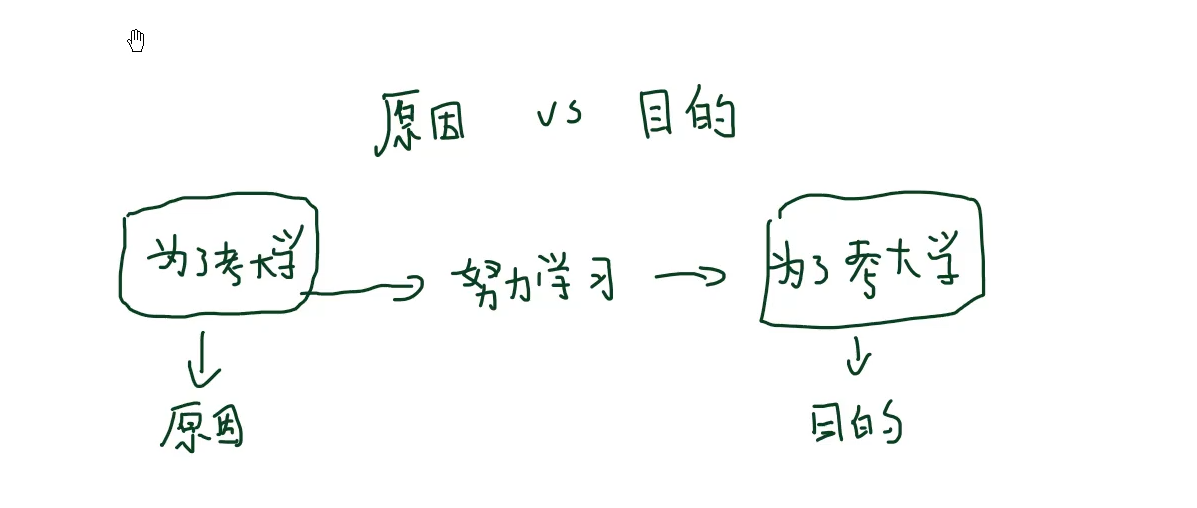 原因 vs 目的
为了考大学 → 努力学习 → 为了考大学
原因 目的